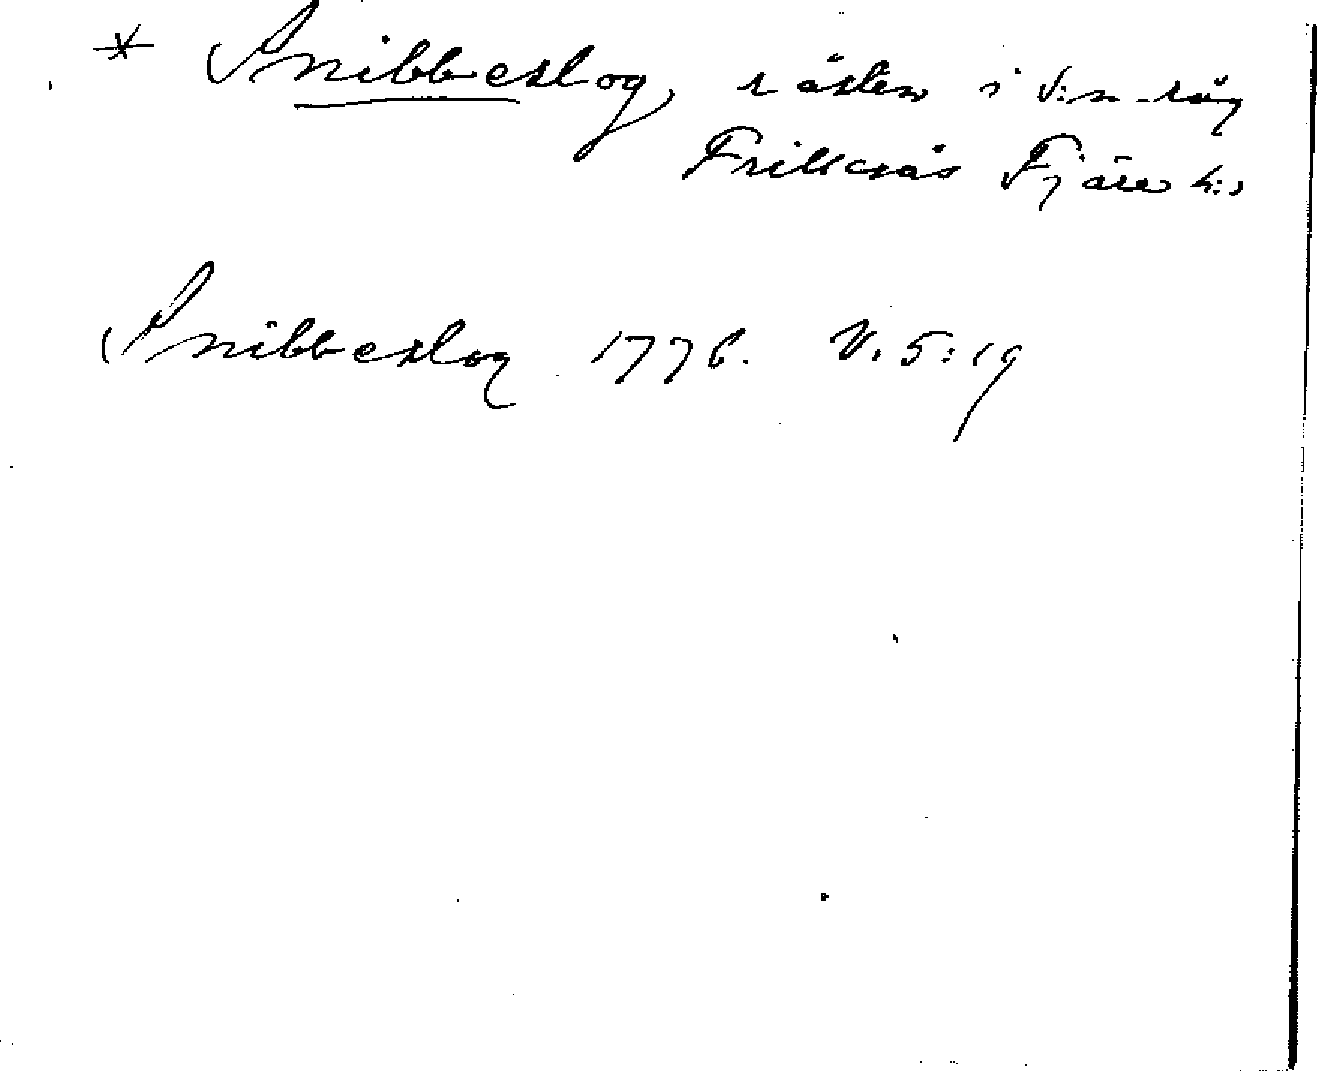 * Snibbeslog, i åsten i V:n-råg
Frillesås Fjäre h:d
Snibbeslog 1776. V. 5:19